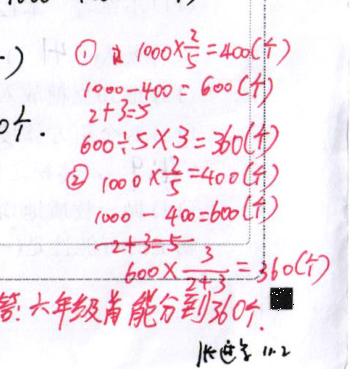 ① 1000×2/5=400(个)
1000-400=600(个)
2+3=5
600÷5×3=360(个)
② 1000×2/5=400(个)
1000-400=600(个)
2+3=5
600×3/(2+3)=360(个)
答:六年级首能分到360个.
11.2